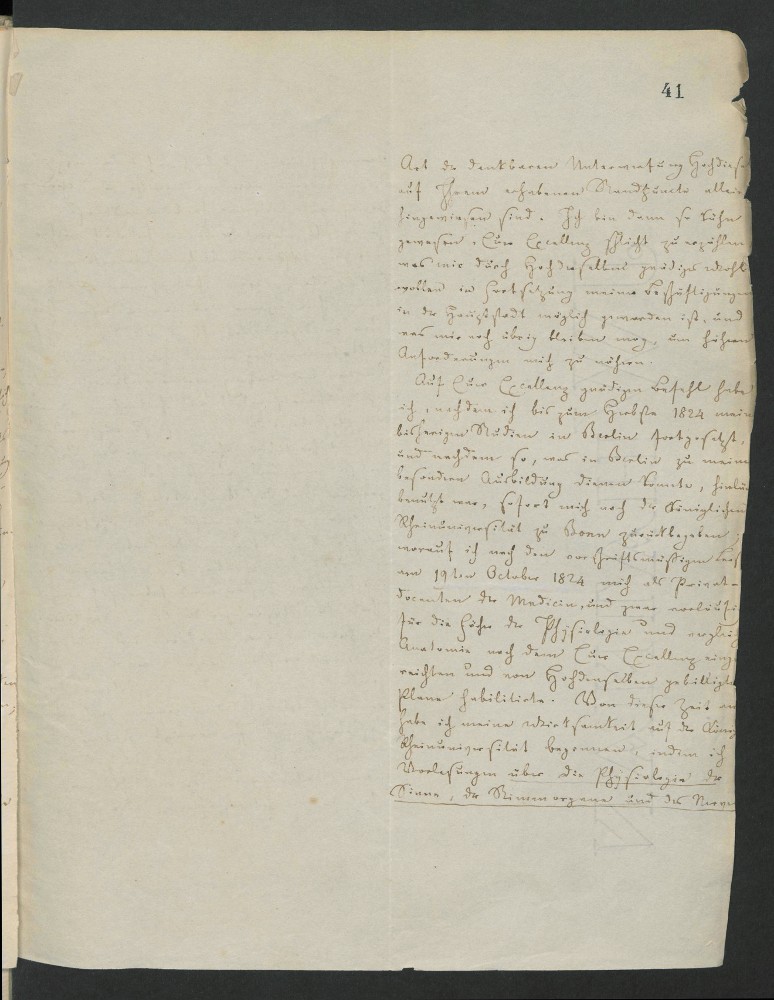 41
Art der dankbaren Unterwerfung Hochdiesel
auf Ihrem erhabenen Standpuncte allein
hingewiesen sind. Ich bin dann so kühn
gewesen, Eure Excellenz schlicht zu erzählen
was mir durch Hochdieselben gnädiges Wohl
wollen in Fortsetzung meiner Beschäftigungen
in der Hauptstadt möglich geworden ist, und
was mir noch übrig bleiben mag, um höheren
Anforderungen mich zu nähern.
Auf Eurer Excellenz gnädigen Befehl habe
ich, nachdem ich bis zum Herbste 1824 meine
bisherigen Studien in Berlin fortgesetzt,
und nachdem so, was in Berlin zu meiner
besondren Ausbildung dienen konnte,
benutzt war, sofort mich nach der Königlichen
Rheinuniversität zu Bonn zurückbegeben;
worauf ich nach den vorschriftsmässigen
am 19ten October 1824 mich als Privat-
docenten der Medicin, und zwar vorläufig
für die Fächer der Physiologie und vergleich
Anatomie nach dem Eurer Excellenz einge
reichten und von Hochdenselben gebilligten
Plane habilitirte. Von dieser Zeit an
habe ich meine Wirksamkeit auf der König
Rheinuniversität begonnen, indem ich
Vorlesungen über die Physiologie der
Sinne, der Stimmorgane und des Nerven